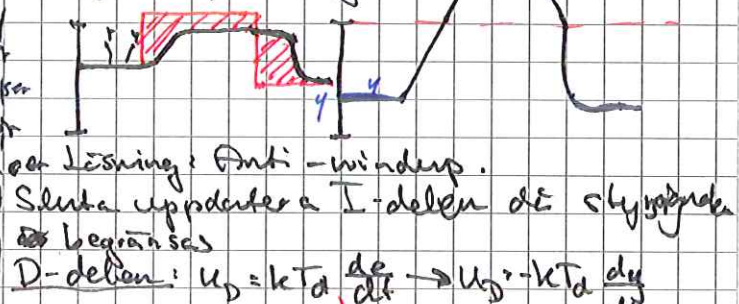 r r
y
y
Lösning: Anti-windup.
Sluta uppdatera I-delen då styrsignalen
begränsas
D-delen: u_D = kT_d de/dt → u_D = -kT_d dy